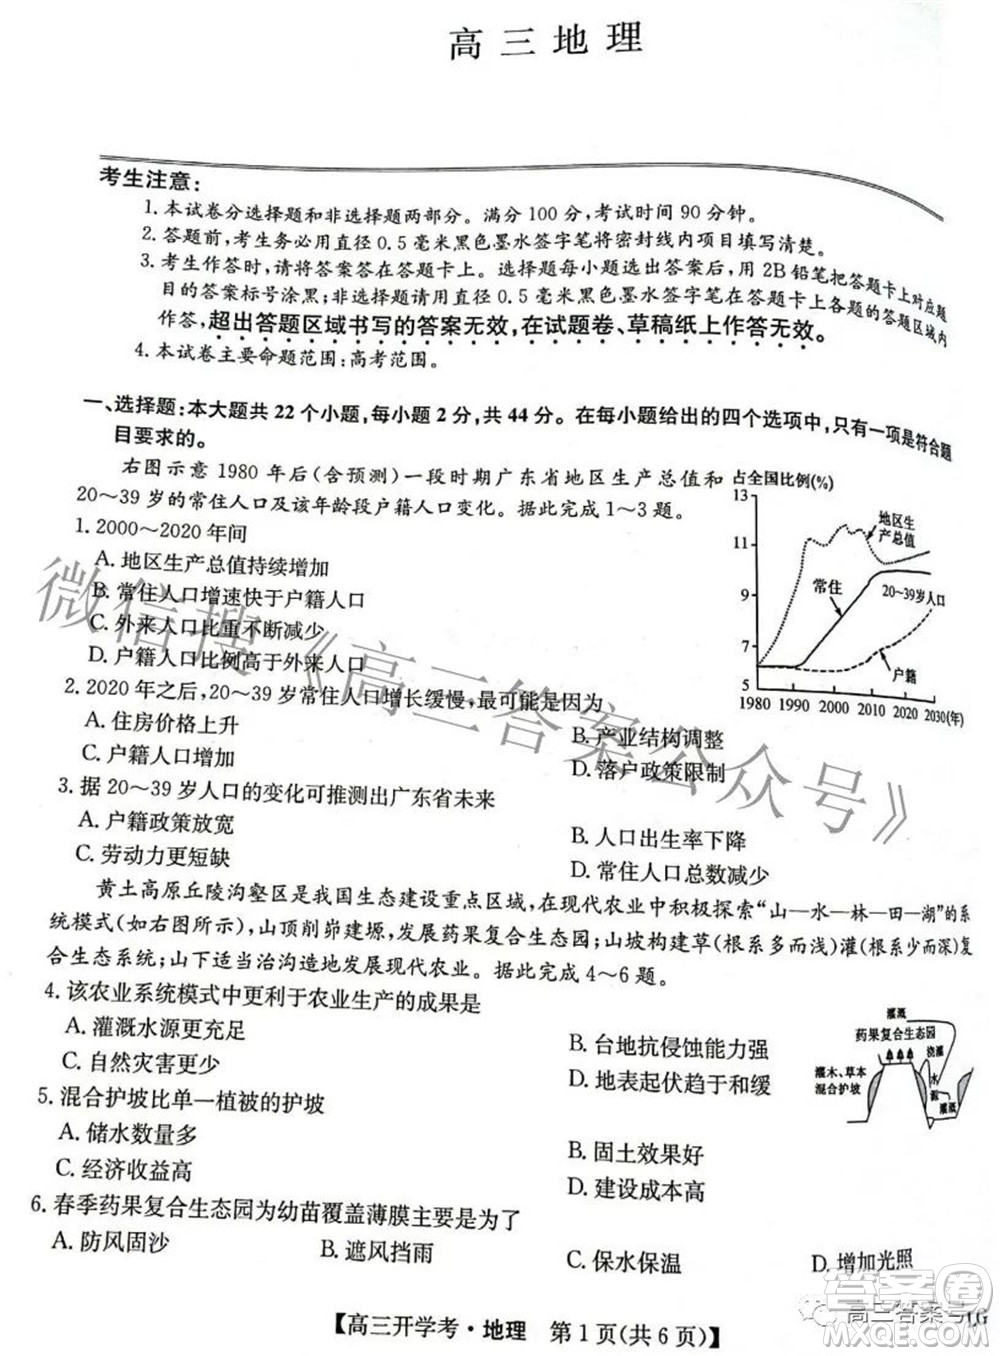 高三地理
考生注意：
1. 本试卷分选择题和非选择题两部分。满分 100 分，考试时间 90 分钟。
2. 答题前，考生务必用直径 0.5 毫米黑色墨水签字笔将密封线内项目填写清楚。
3. 考生作答时，请将答案答在答题卡上。选择题每小题选出答案后，用 2B 铅笔把答题卡上对应题
目的答案标号涂黑；非选择题请用直径 0.5 毫米黑色墨水签字笔在答题卡上各题的答题区域内
作答，超出答题区域书写的答案无效，在试题卷、草稿纸上作答无效。
4. 本试卷主要命题范围：高考范围。
一、选择题：本大题共 22 个小题，每小题 2 分，共 44 分。在每小题给出的四个选项中，只有一项是符合题
目要求的。
右图示意 1980 年后（含预测）一段时期广东省地区生产总值和
20～39 岁的常住人口及该年龄段户籍人口变化。据此完成 1～3 题。
占全国比例(%)
13
11
9
7
5
地区生
产总值
常住
20~39岁人口
户籍
1980 1990 2000 2010 2020 2030(年)
1. 2000～2020 年间
A. 地区生产总值持续增加
B. 常住人口增速快于户籍人口
C. 外来人口比重不断减少
D. 户籍人口比例高于外来人口
2. 2020 年之后，20～39 岁常住人口增长缓慢，最可能是因为
A. 住房价格上升
B. 产业结构调整
C. 户籍人口增加
D. 落户政策限制
3. 据 20～39 岁人口的变化可推测出广东省未来
A. 户籍政策放宽
B. 人口出生率下降
C. 劳动力更短缺
D. 常住人口总数减少
黄土高原丘陵沟壑区是我国生态建设重点区域，在现代农业中积极探索“山—水—林—田—湖”的系
统模式（如右图所示），山顶削峁建塬，发展药果复合生态园；山坡构建草（根系多而浅）灌（根系少而深）复
合生态系统；山下适当治沟造地发展现代农业。据此完成 4～6 题。
4. 该农业系统模式中更利于农业生产的成果是
A. 灌溉水源更充足
B. 台地抗侵蚀能力强
C. 自然灾害更少
D. 地表起伏趋于和缓
灌溉
药果复合生态园
浇灌
灌木、草本
混合护坡
水
源
灌溉
5. 混合护坡比单一植被的护坡
A. 储水数量多
B. 固土效果好
C. 经济收益高
D. 建设成本高
6. 春季药果复合生态园为幼苗覆盖薄膜主要是为了
A. 防风固沙
B. 遮风挡雨
C. 保水保温
D. 增加光照
【高三开学考·地理 第 1 页（共 6 页）】
LG
微信搜《高三答案公众号》
高三答案号
答案卷
MXQE.COM